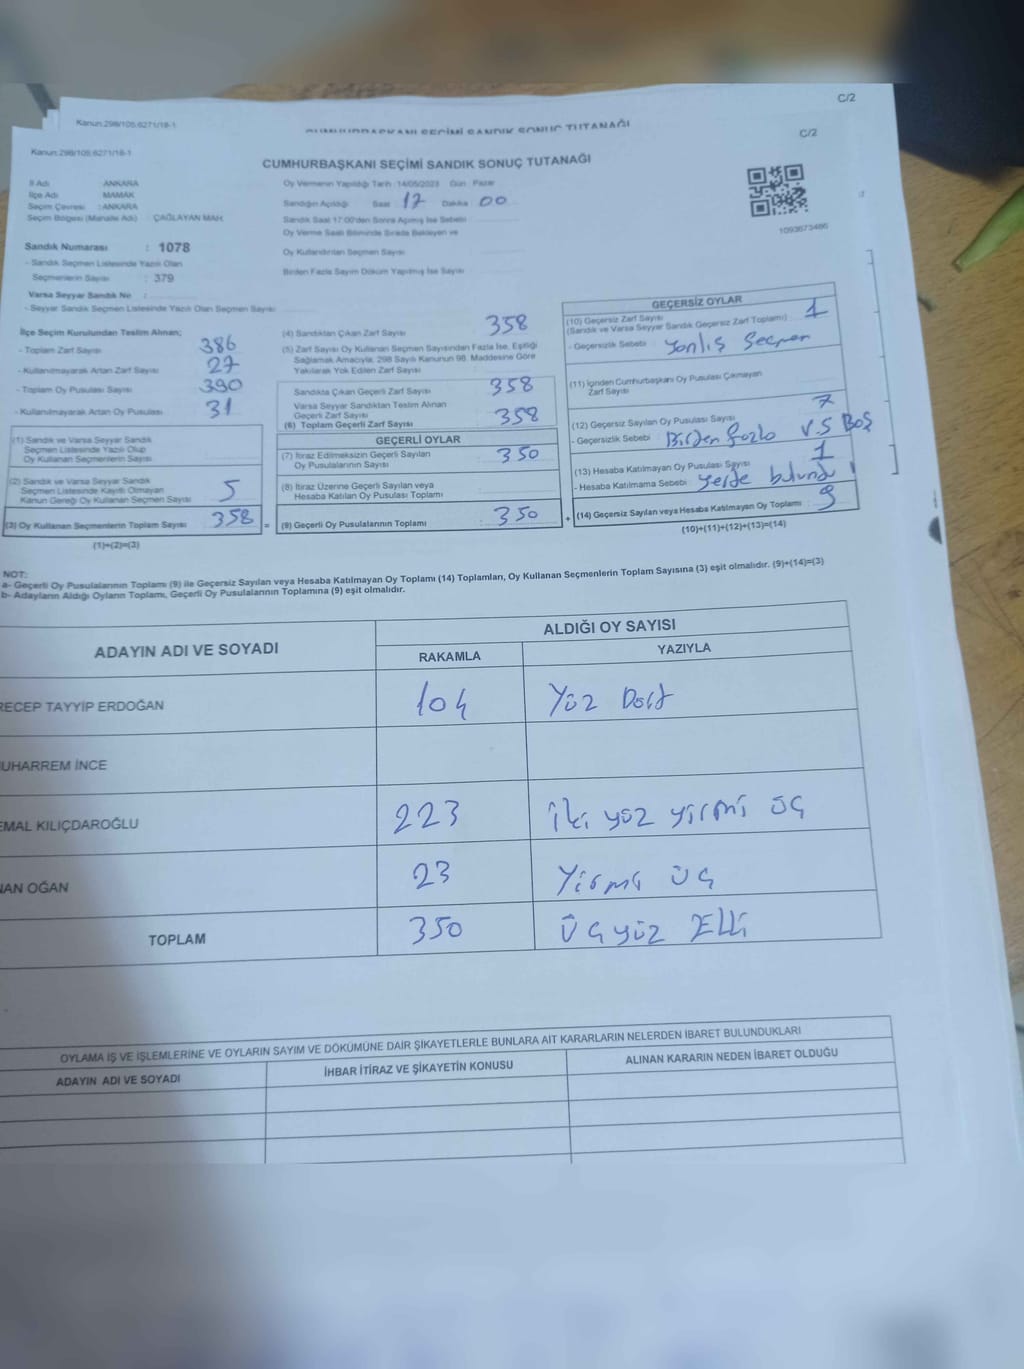 C/2
Kanun:298/105,6271/18-1
C/2
Kanun:298/105,6271/18-1
CUMHURBAŞKANI SEÇİMİ SANDIK SONUÇ TUTANAĞI
İl Adı : ANKARA
İlçe Adı : MAMAK
Seçim Çevresi : ANKARA
Seçim Bölgesi (Mahalle Adı) : ÇAĞLAYAN MAH.
Oy Vermenin Yapıldığı Tarih :14/05/2023 Gün : Pazar
Sandığın Açıldığı Saat : 17 Dakika : 00
Sandık Saat 17:00'den Sonra Açılmış İse Sebebi :
Oy Verme Saati Bitiminde Sırada Bekleyen ve
Oy Kullandırılan Seçmen Sayısı
Birden Fazla Sayım Döküm Yapılmış İse Sayısı
1093673486
Sandık Numarası : 1078
- Sandık Seçmen Listesinde Yazılı Olan
Seçmenlerin Sayısı : 379
Varsa Seyyar Sandık No :
- Seyyar Sandık Seçmen Listesinde Yazılı Olan Seçmen Sayısı
İlçe Seçim Kurulundan Teslim Alınan;
- Toplam Zarf Sayısı 386
- Kullanılmayarak Artan Zarf Sayısı 27
- Toplam Oy Pusulası Sayısı 390
- Kullanılmayarak Artan Oy Pusulası 31
(1) Sandık ve Varsa Seyyar Sandık
Seçmen Listesinde Yazılı Olup
Oy Kullanan Seçmenlerin Sayısı
(2) Sandık ve Varsa Seyyar Sandık
Seçmen Listesinde Kayıtlı Olmayan
Kanun Gereği Oy Kullanan Seçmen Sayısı 5
(3) Oy Kullanan Seçmenlerin Toplam Sayısı 358 =
(1)+(2)=(3)
(4) Sandıktan Çıkan Zarf Sayısı 358
(5) Zarf Sayısı Oy Kullanan Seçmen Sayısından Fazla İse, Eşitliği
Sağlamak Amacıyla, 298 Sayılı Kanunun 98. Maddesine Göre
Yakılarak Yok Edilen Zarf Sayısı
Sandıkta Çıkan Geçerli Zarf Sayısı 358
Varsa Seyyar Sandıktan Teslim Alınan
Geçerli Zarf Sayısı
(6) Toplam Geçerli Zarf Sayısı 358
GEÇERLİ OYLAR
(7) İtiraz Edilmeksizin Geçerli Sayılan
Oy Pusulalarının Sayısı 350
(8) İtiraz Üzerine Geçerli Sayılan veya
Hesaba Katılan Oy Pusulası Toplamı
(9) Geçerli Oy Pusulalarının Toplamı : 350 +
GEÇERSİZ OYLAR
(10) Geçersiz Zarf Sayısı
(Sandık ve Varsa Seyyar Sandık Geçersiz Zarf Toplamı) : 1
- Geçersizlik Sebebi : Yanlış Seçmen
(11) İçinden Cumhurbaşkanı Oy Pusulası Çıkmayan
Zarf Sayısı
(12) Geçersiz Sayılan Oy Pusulası Sayısı 7
- Geçersizlik Sebebi : Birden fazla V.S BOŞ
(13) Hesaba Katılmayan Oy Pusulası Sayısı 1
- Hesaba Katılmama Sebebi : yerde bulundu
(14) Geçersiz Sayılan veya Hesaba Katılmayan Oy Toplamı : 9
(10)+(11)+(12)+(13)=(14)
NOT:
a- Geçerli Oy Pusulalarının Toplamı (9) ile Geçersiz Sayılan veya Hesaba Katılmayan Oy Toplamı (14) Toplamları, Oy Kullanan Seçmenlerin Toplam Sayısına (3) eşit olmalıdır. (9)+(14)=(3)
b- Adayların Aldığı Oyların Toplamı, Geçerli Oy Pusulalarının Toplamına (9) eşit olmalıdır.
ADAYIN ADI VE SOYADI
ALDIĞI OY SAYISI
RAKAMLA YAZIYLA
RECEP TAYYİP ERDOĞAN 104 Yüz Dört
UHARREM İNCE
EMAL KILIÇDAROĞLU 223 iki yüz yirmi üç
NAN OĞAN 23 Yirmi üç
TOPLAM 350 Üçyüz Elli
OYLAMA İŞ VE İŞLEMLERİNE VE OYLARIN SAYIM VE DÖKÜMÜNE DAİR ŞİKAYETLERLE BUNLARA AİT KARARLARIN NELERDEN İBARET BULUNDUKLARI
ADAYIN ADI VE SOYADI İHBAR İTİRAZ VE ŞİKAYETİN KONUSU ALINAN KARARIN NEDEN İBARET OLDUĞU